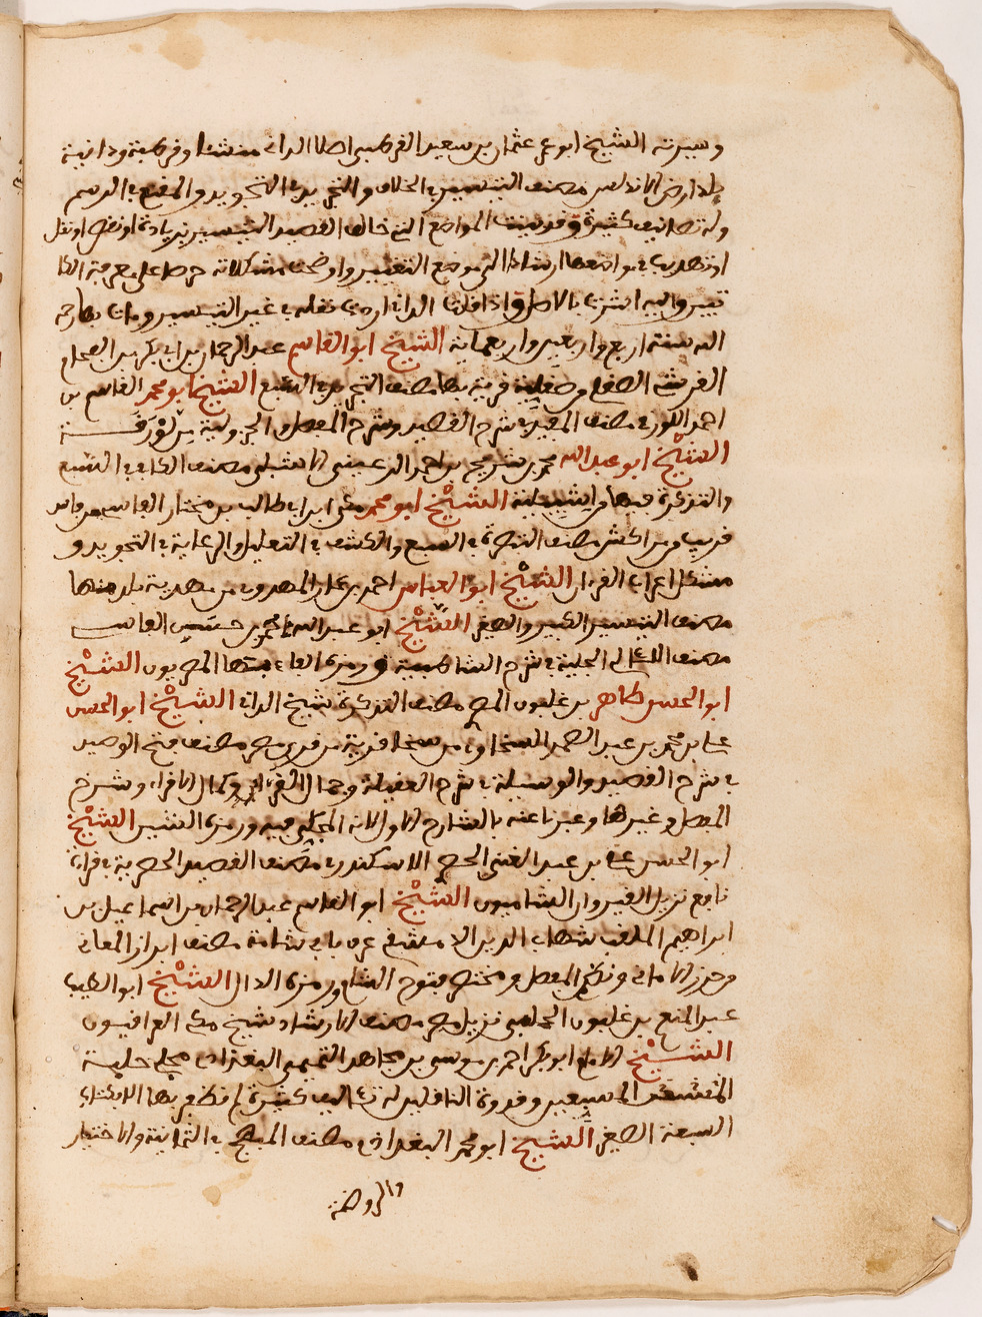 وسيرته الشيخ ابو عمر عثمان بن سعيد القرطبي اصلا الداني منشئا وقرطبة ودانية
بلد ارض الاندلس مصنف التيسير في الخلاف والتحديد في التجويد والمقنع في الرسم
وله تصانيف كثيرة وقد بينت المواضع التي خالف القصيد التيسير بزيادة او نقص او نقل
او تهذيب في مواضعها ارشادا الى موضع التغيير واوضحت مشكلاته حرصا على معرفة
واليه اشرت بالاصل واذا قلت الداني اردت نقله في غير التيسير ومات
سنة اربع واربعين واربعماية الشيخ ابو القاسم عبد الرحمان بن ابي بكر بن الفحام
القرشي الصقلي وصقلية قرية بها مصنف التجريد في السبع الشيخ ابو محمد القاسم بن
احمد اللورقي مصنف المفيد في شرح القصيد وشرح المفصل والجزولية من لورقة
الشيخ ابو عبد الله محمد بن شريح بن احمد الرعيني الاشبيلي مصنف الكافي في السبع
والتذكرة فيها من اشبيلية الشيخ ابو محمد مكي ابن ابي طالب بن مختار القاسي من فاس
قريب من مراكش مصنف التبصرة في السبع والكشف في التعليل والرعاية في التجويد و
مشكل اعراب القران الشيخ ابو العباس احمد بن عمار المهدوي من مهدية بلد منها
مصنف التيسير الكبير والصغير الشيخ ابو عبد الله محمد بن حسن الفاسي
مصنف اللئالي الجلية في شرح الشاطبية ورمزي الفاء منها المصريون الشيخ
ابو الحسن طاهر بن غلبون المصري مصنف التذكرة شيخ الداني الشيخ ابو الحسن
علي بن محمد بن عبد الصمد السخاوي من سخا قرية من قرى مصر مصنف فتح الوصيد
في شرح القصيد والوسيلة في شرح العقيلة وجمال القراء وكمال الاقراء وشرح
المفصل وغيرها وعبرنا عنه بالشارح الاول لانه المجلي فيه ورمزي الشين الشيخ
ابو الحسن علي بن عبد الغني الحصري الاسكندري مصنف القصيد الحصرية في قراة
نافع نزيل القيروان الشاميون الشيخ ابو القاسم عبد الرحمان بن اسماعيل بن
ابراهيم الملقب شهاب الدين الدمشقي عرف بابي شامة مصنف ابراز المعاني
من حرز الاماني ونظم المفصل ومختصر فتوح الشام ورمزي الدال الشيخ ابو الطيب
عبد المنعم بن غلبون الحلبي نزيل مصر مصنف الارشاد شيخ مكي العراقيون
الشيخ الامام ابو بكر احمد بن موسى بن مجاهد التميمي البغدادي مجلي حلبة
المسبعين وقدوة الناقلين له تواليف كثيرة لم نظفر بها الا بكتاب
السبعة الصغير الشيخ ابو محمد البغدادي مصنف المبهج في الثمانية والاختيار
والروضة